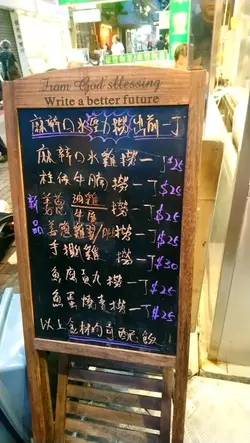 From God'sBlessing
Write a better future
麻辣口水雞撈出前一丁
麻辣口水雞撈一丁$25
柱侯牛腩撈一丁$25
新品
薑蔥 油雞 撈一丁$25
牛
薑蔥雞 撈一丁$25
手撕雞 撈一丁$30
魚腐 丸 撈一丁$25
魚蛋 撈一丁$25
以上 材料可配飯